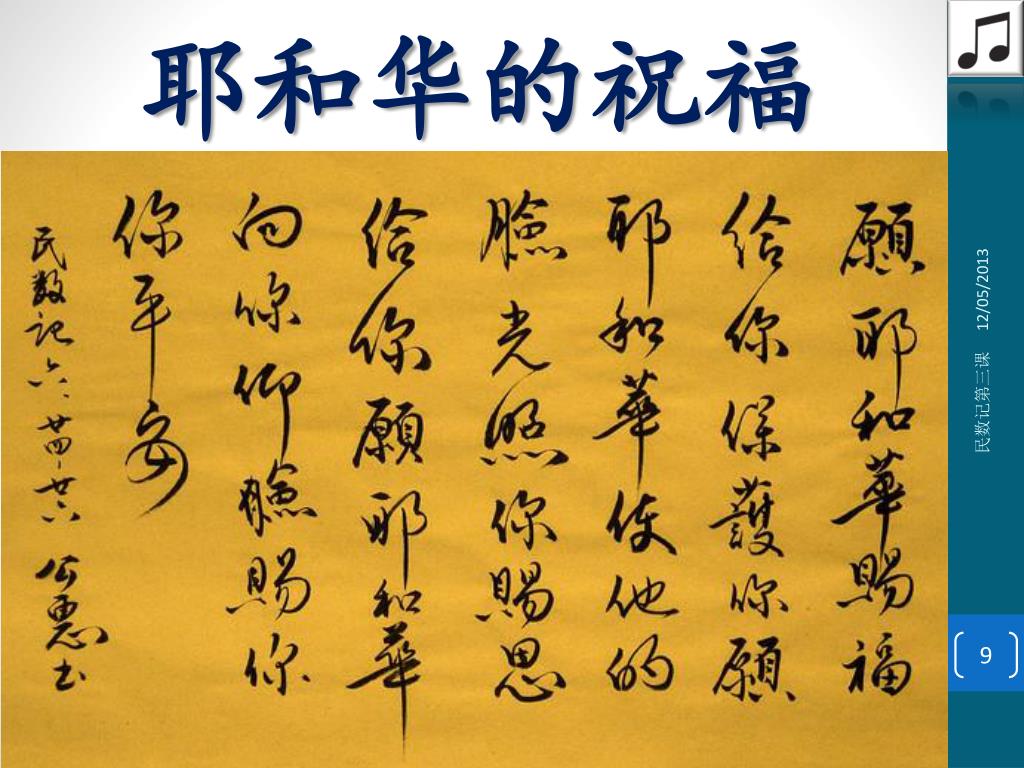 耶和华的祝福
願耶和華賜福
给你保護你願
耶和華使他的
臉光照你賜恩
给你願耶和華
向你仰臉賜你
你平安
民数記六、廿四-廿六
民数记第三课 12/05/2013
9